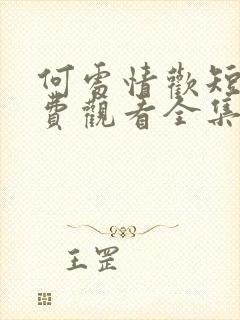 何處情歡短
費觀看全集
王罡